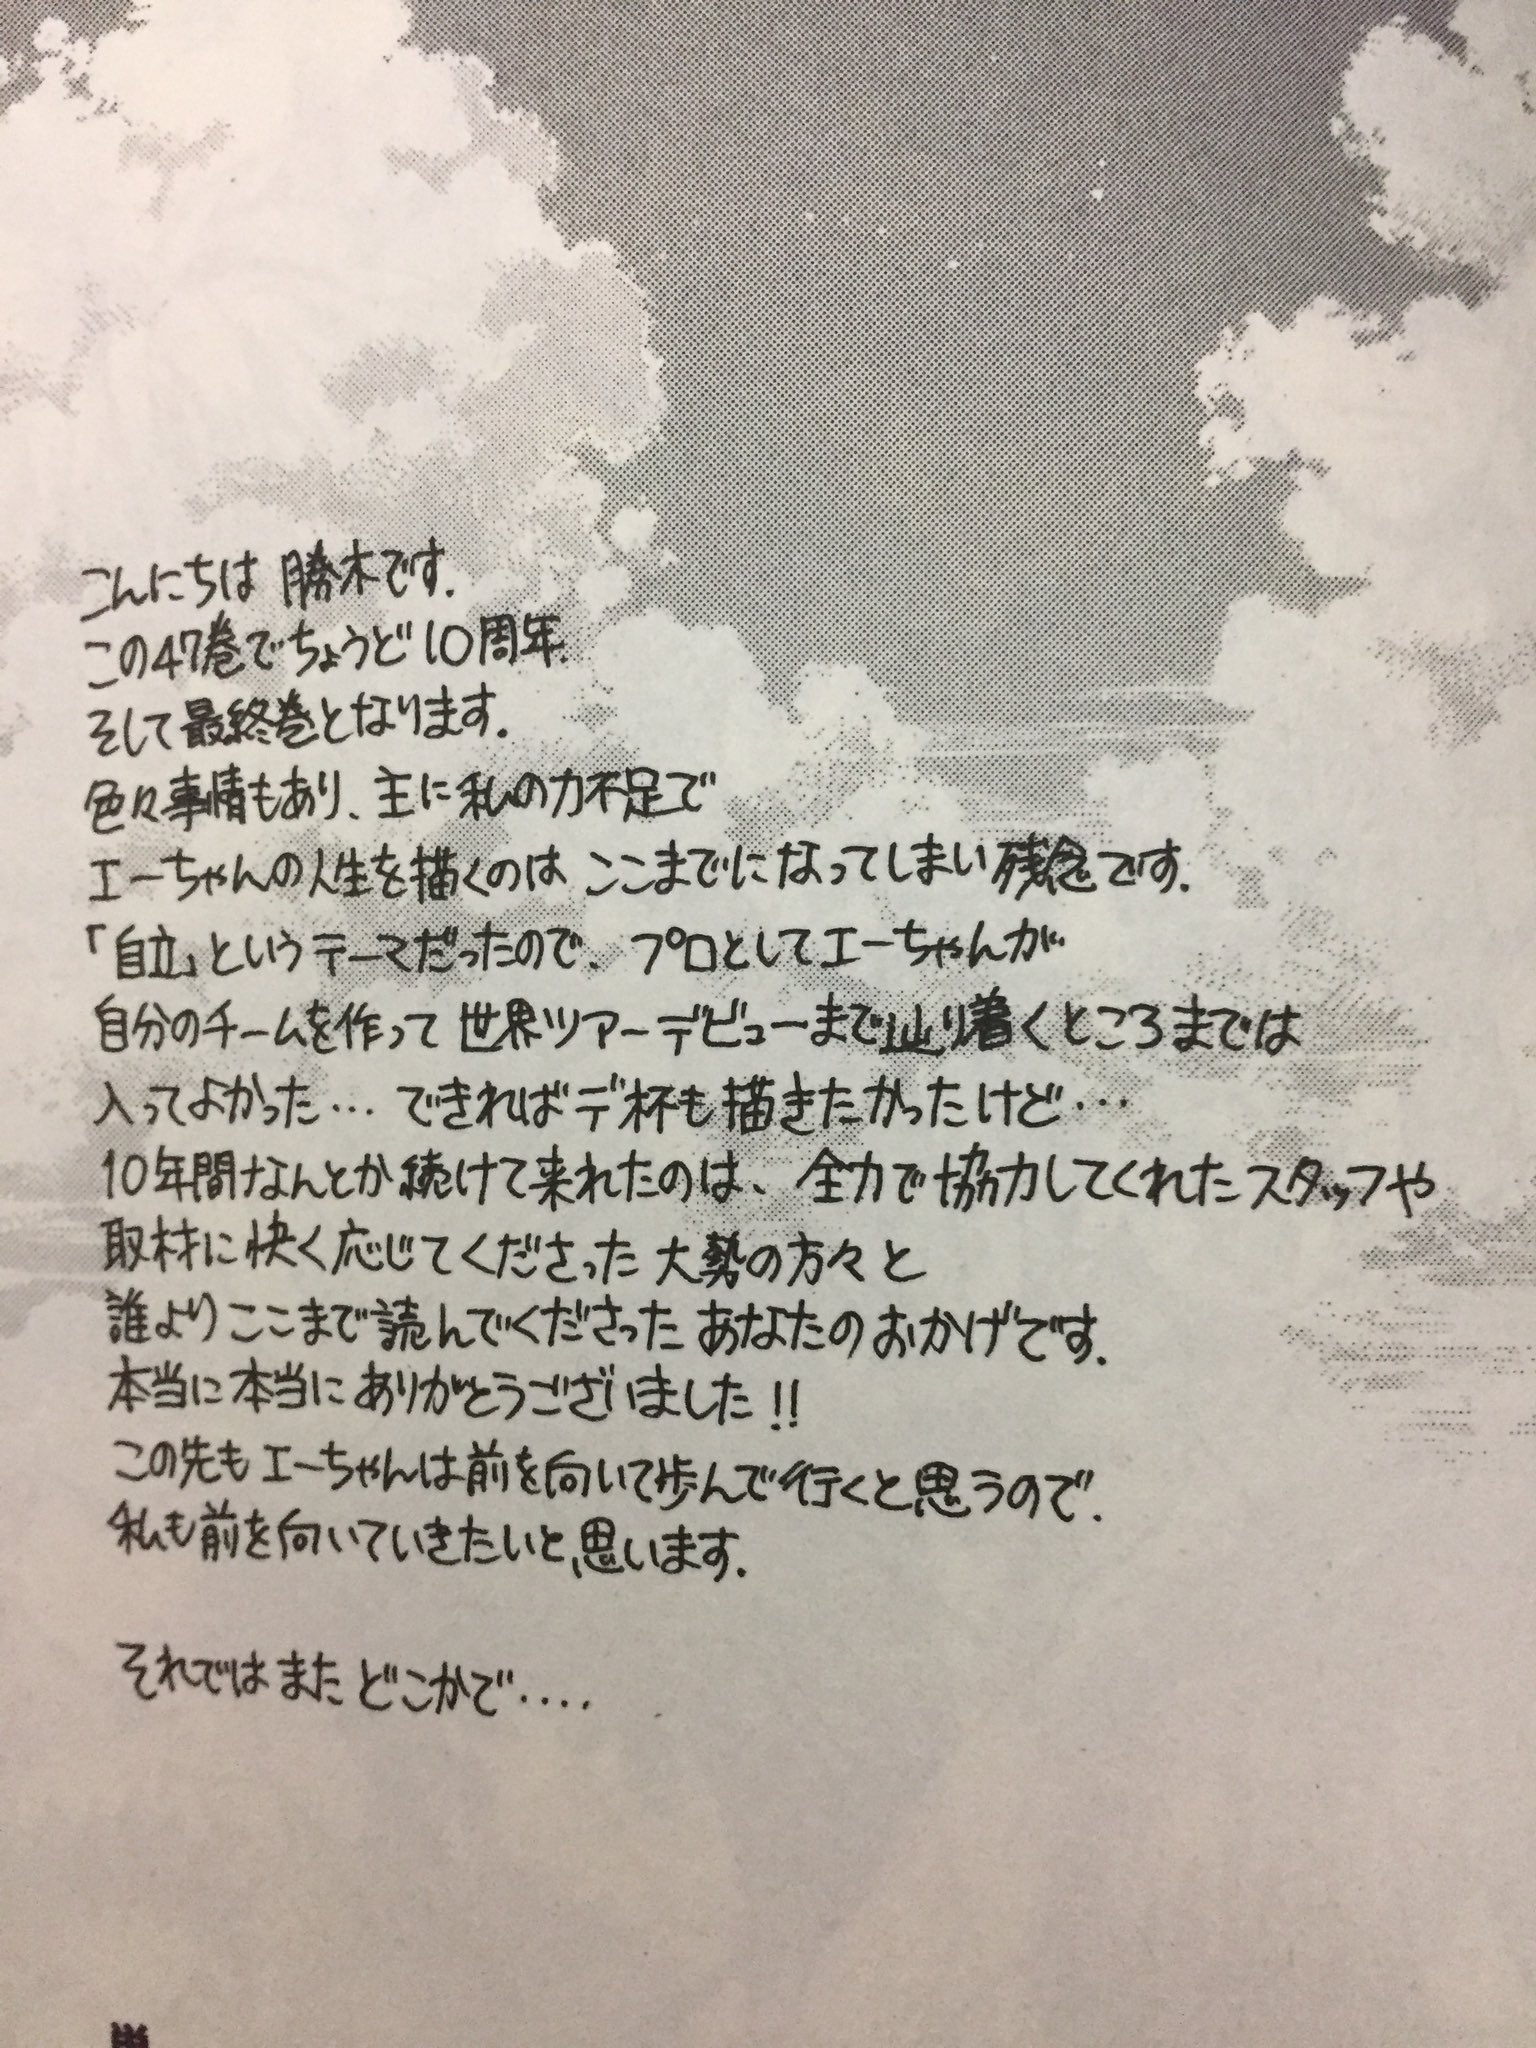 こんにちは 勝木です.
この47巻でちょうど10周年.
そして最終巻となります.
色々事情もあり、主に私の力不足で
エーちゃんの人生を描くのは ここまでになってしまい残念です.
「自立」というテーマだったので、プロとしてエーちゃんが
自分のチームを作って 世界ツアーデビューまで辿り着くところまでは
入ってよかった… できればデ杯も描きたかったけど…
10年間なんとか続けて来れたのは、全力で協力してくれたスタッフや
取材に快く応じてくださった 大勢の方々と
誰より ここまで読んでくださった あなたのおかげです.
本当に本当に ありがとうございました!!
この先も エーちゃんは前を向いて歩んで行くと思うので.
私も前を向いていきたいと思います.
それではまた どこかで....